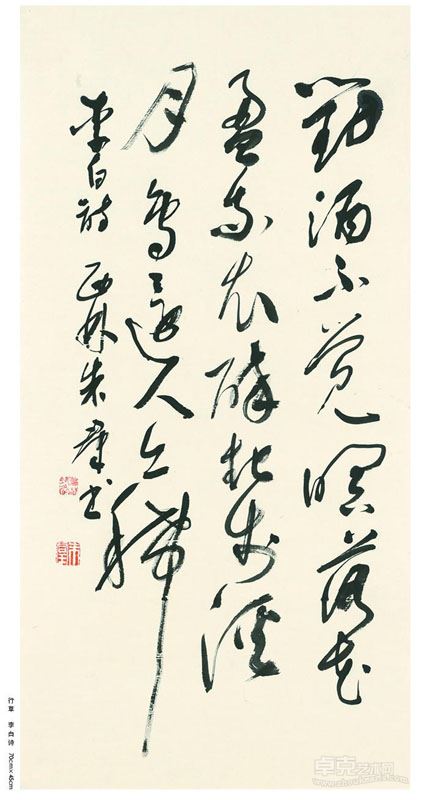 對酒不覺暝落花
盈我衣醉起步溪
月鳥還人亦稀
李白詩 朱 書
行草 李白诗 70cm×45cm
卓克艺术网